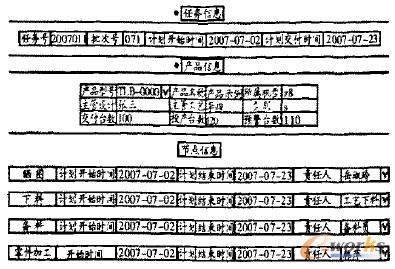 任务信息
任务号 200701 批次号 071 计划开始时间 2007-07-02 计划交付时间 2007-07-23
产品信息
产品型号 TLB-0000 产品名称 产品示例 所属机型 z8
主管设计 张三 主管工艺 李四
交付台数 100 投产台数 120 预警台数 110
节点信息
晒图 计划开始时间 2007-07-02 计划结束时间 2007-07-23 责任人
下料 计划开始时间 2007-07-02 计划结束时间 2007-07-23 责任人 工艺下料
备料 计划开始时间 2007-07-02 计划结束时间 2007-07-23 责任人
零件加工 开始时间 2007-07-02 计划结束时间 2007-07-23 责任人